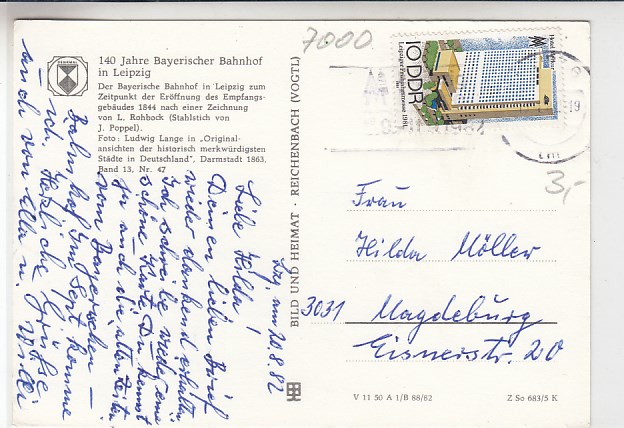 7000
140 Jahre Bayerischer Bahnhof
in Leipzig
Der Bayerische Bahnhof in Leipzig zum
Zeitpunkt der Eröffnung des Empfangs-
gebäudes 1844 nach einer Zeichnung
von L. Rohbock (Stahlstich von
J. Poppel).
Foto: Ludwig Lange in „Original-
ansichten der historisch merkwürdigsten
Städte in Deutschland", Darmstadt 1863,
Band 13, Nr. 47
BILD UND HEIMAT · REICHENBACH (VOGTL)
10 DDR
Leipziger Herbstmesse 1981
19
3,-
Lpg, am 10.8.82
Liebe Hilda!
Deinen lieben Brief
wieder dankend erhalten
Ich schreibe wieder eine
schöne Karte Du kennst
ja auch die alten Zeiten
vom Bayerischen –
Bahnhof Im Sept. komme
ich. Herzliche Grüße
auch von Ella u. Willi
Frau
Hilda Möller
3031 Magdeburg
Eisnerstr. 20
V 11 50 A 1/B 88/82
Z So 683/5 K